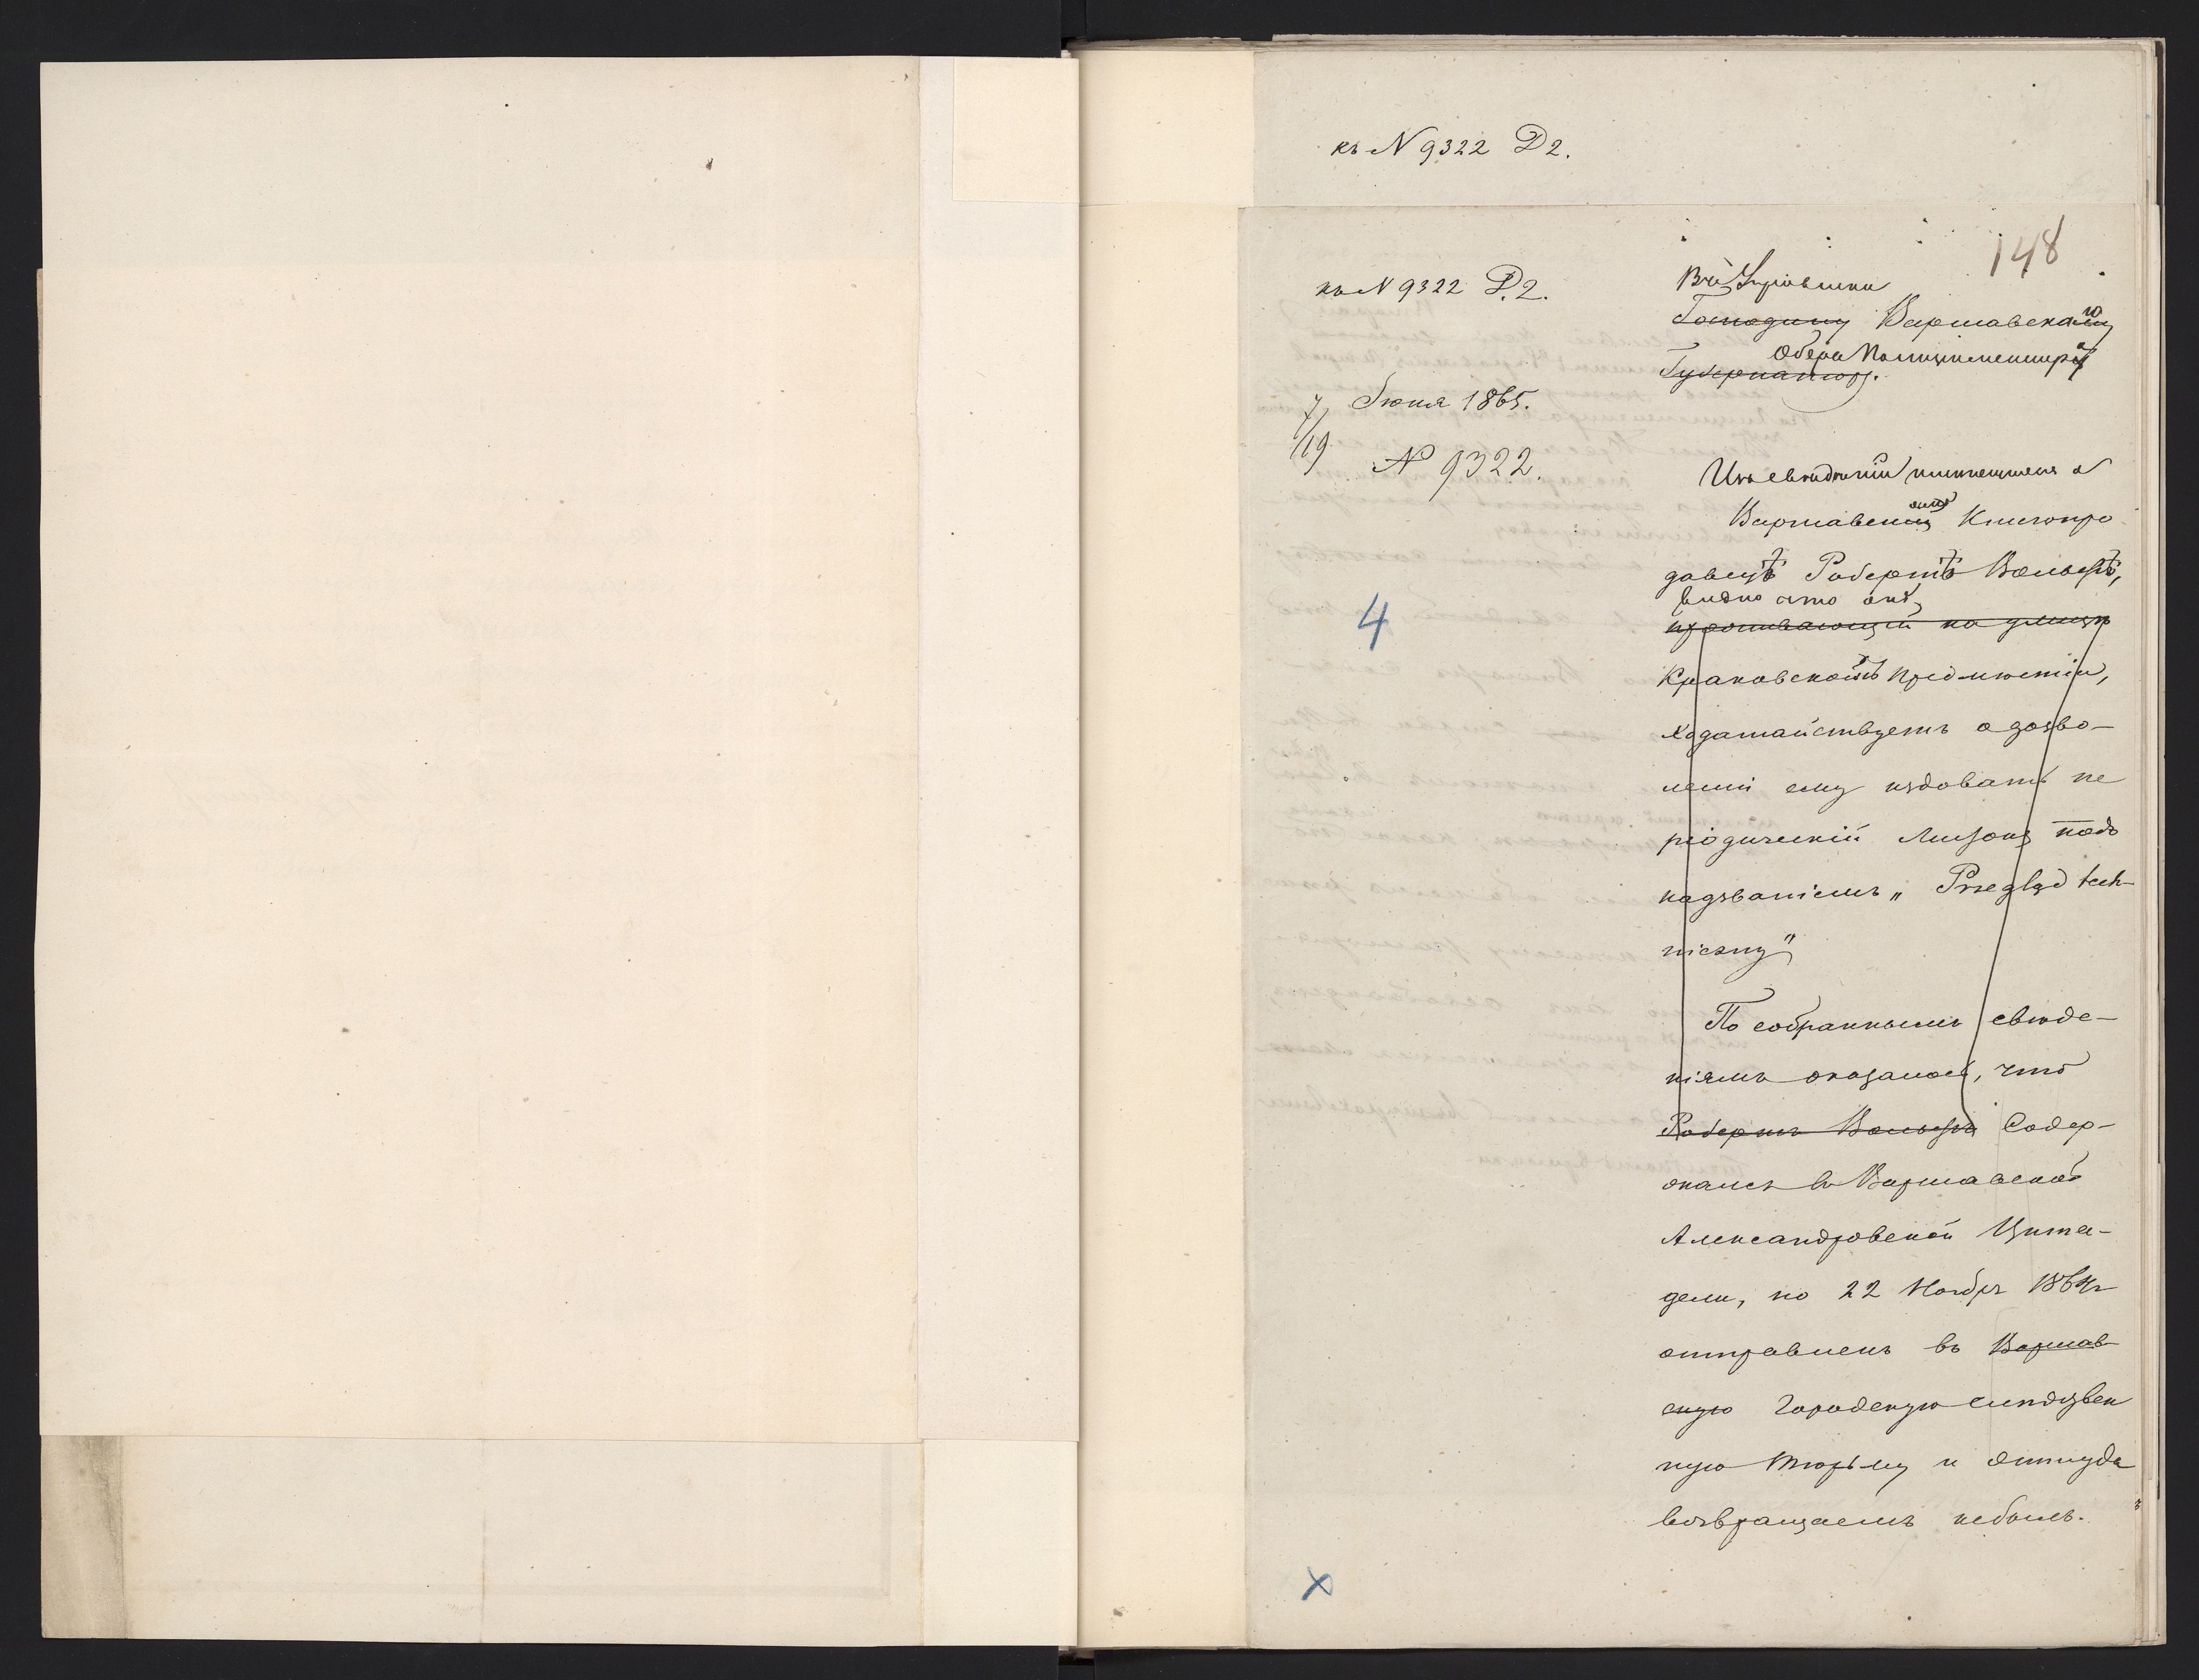 къ N 9322 D2.
148
къ N 9322 D.2.
7/19 Іюня 1865.
N 9322.
4
Въ Управленіе
Господину Варшавскаго
Оберъ Полицмейстера
Губернатору.
Изъ свѣдѣній имеющихся о
Варшавскомъ Книгопро
давцѣ Робертѣ Вольфѣ,
видно что онъ
проживающій на улицѣ
Краковскомъ предмѣстіи,
ходатайствуетъ о дозво-
леніи ему издовать пе
ріодическій листокъ подъ
надзваніемъ „Przegląd tech-
niczny"
По собраннымъ свѣде-
ніямъ оказалось, что
Робертъ Вольфъ содер-
жался въ Варшавской
Александровской Цита-
дели, но 22 Ноября 1864г
отправленъ въ Варшав
скую городскую слѣдствен
ную тюрьму и оттуда
возвращаемъ небылъ.
х